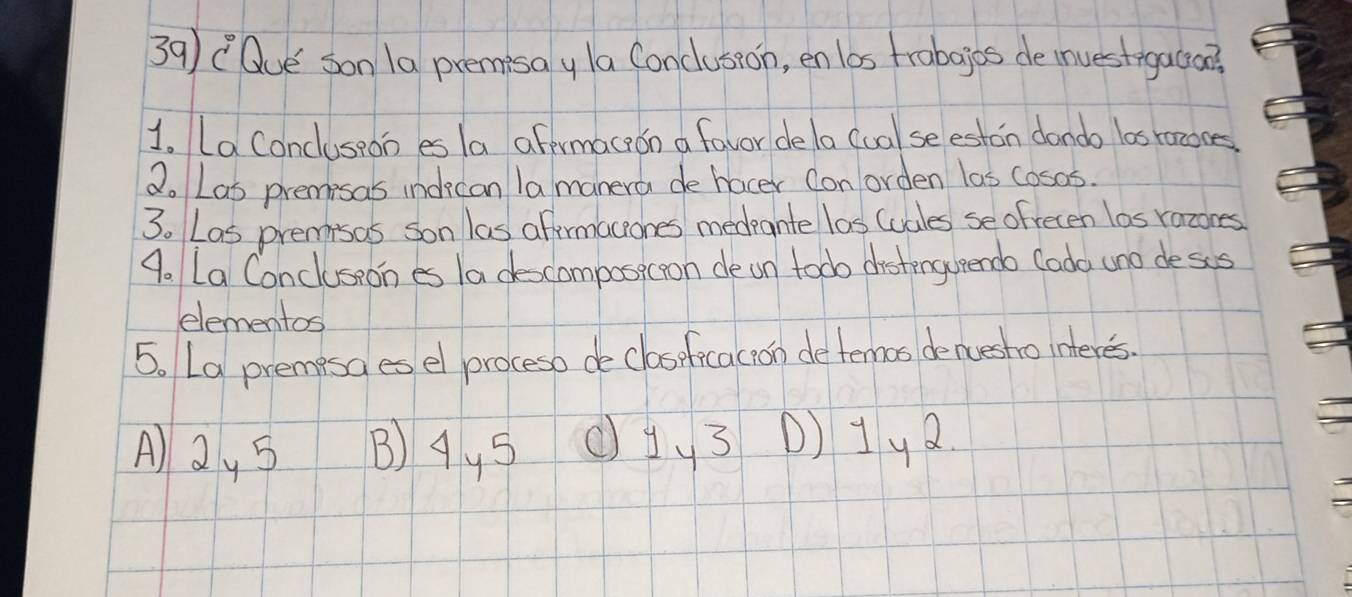 39) ¿Qué son la premisa y la Conclusión, en los trabajos de investigación?
1. La Conclusión es la afirmación a favor de la cual se están dando las razones.
2. Las premisas indican la manera de hacer con orden las cosas.
3. Las premisas son las afirmaciones mediante las cuales se ofrecen las razones
4. La Conclusión es la descomposición de un todo distinguiendo cada uno de sus
elementos
5. La premisa es el proceso de clasificación de temas de nuestro interés.
A) 2 y 5 B) 4 y 5 C) 1 y 3 D) 1 y 2.